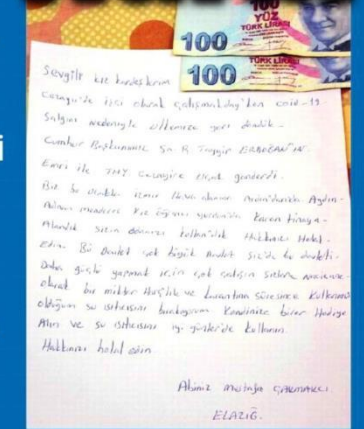 100
YÜZ
TÜRK LİRASI
100
YÜZ
TÜRK LİRASI
Sevgili kız kardeşlerim
işçi olarak çalışmaktay'dım covid-19
Salgını nedeniyle ülkemize geri döndük.
Cumhur Başkanımız Sn R. Tayyip ERDOĞAN'IN
Emri ile THY Cezayire uçak gönderdi.
Biz bu uçakla izmir Hava alanına Aydın-
Adnan menderes Kız öğrenci yurdunda Karantinaya-
Alındık sizin odanızı kullandık Hakkınızı Helal-
Edin. Bu Devlet çok büyük Devlet siz'de bu devleti-
Daha güçlü yapmak için çok çalışın sizlere
olarak bir miktar Harçlık ve karantina süresince kullanmış
olduğum su ısıtıcısını bırakıyorum Kendinize birer Hediye
Alın ve su ısıtıcısını iyi günler'de kullanın.
Hakkınızı helal edin
Abiniz Mustafa
ELAZIĞ.
i